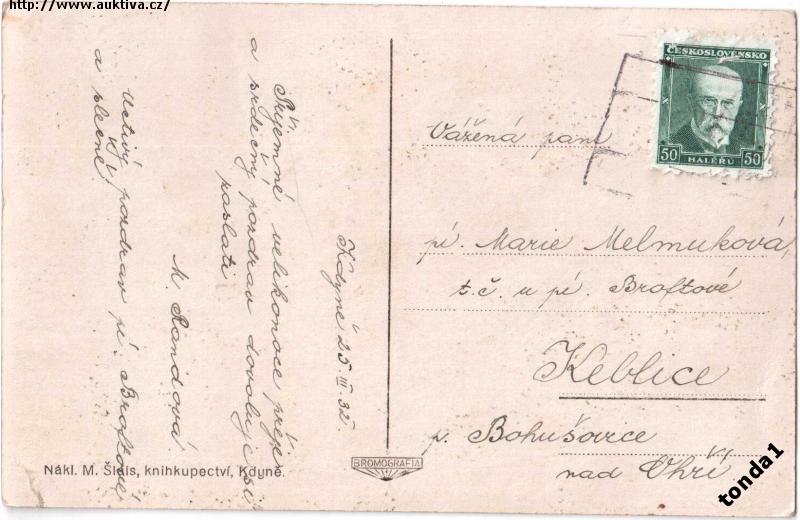 http://www.auktiva.cz/
Kdyně 25.III.32.
Příjemné velikonoce přeje
a srdečný pozdrav dovoluje si
poslati
M. Randová.
Uctivý pozdrav pí. Broftové
a slečně
ČESKOSLOVENSKO
50 50
HALÉŘŮ
Vážená paní
pí. Marie Melmuková,
t.č. u pí. Broftové
Keblice
p. Bohušovice
nad Ohří
Nákl. M. Šlais, knihkupectví, Kdyně.
BROMOGRAFIA
tonda1